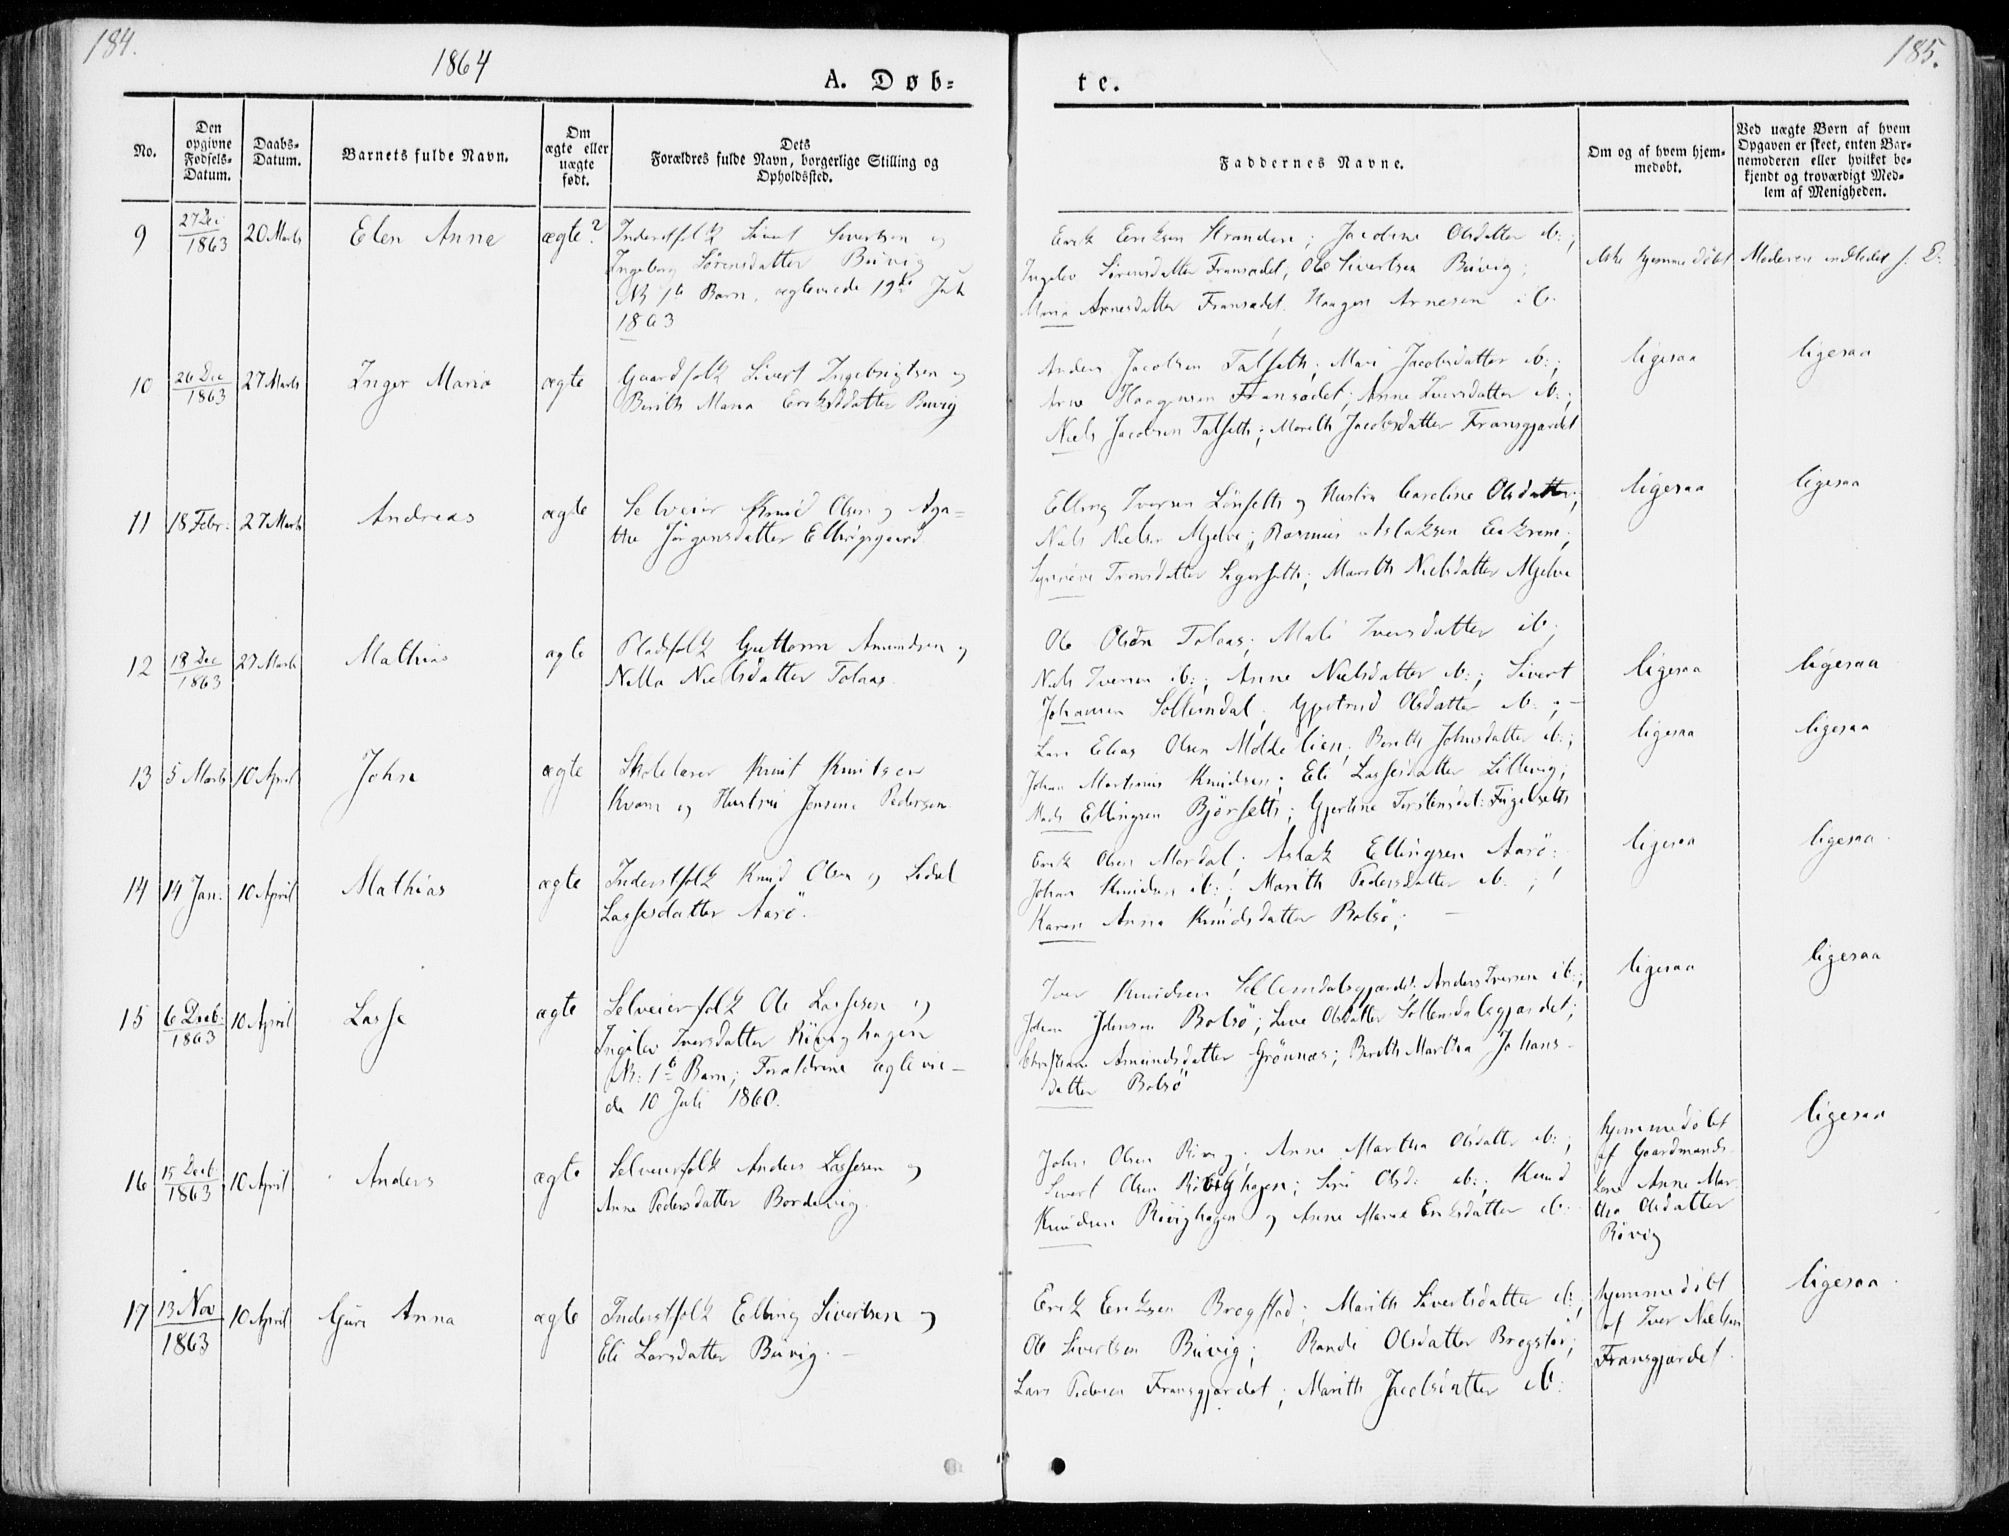 184.
1864
A. Døb=
te.
185.
No.
Den opgivne Fødsels-Datum.
Daabs-Datum.
Barnets fulde Navn.
Om ægte eller uægte født.
Dets
Forældres fulde Navn, borgerlige Stilling og
Opholdssted.
Faddernes Navne.
Om og af hvem hjem-
medøbt.
Ved uægte Børn af hvem
Opgaven er skeet, enten Bar-
nemoderen eller hvilket be-
kjendt og troværdigt Med-
lem af Menigheden.
9 27 Dec 1863 20 Marts Elen Anne ægte? Inderstfolk Sivert Sivertsen og
Ingeborg Sörensdatter Büvig
NB 1te Barn, ægteviede 19de Juli
1863
Erik Eriksen Stranden; Jacobine Olsdatter ib:;
Ingelev Sörensdatter Fransædet, Ole Sivertsen Büvig;
Maria Arnesdatter Fransædet. Haagen Arnesen ib.
ikke hjemmedöbt
Moderen indledet s. D.
10 26 Dec 1863 27 Marts Inger Maria ægte Gaardfolk Sivert Ingebrigtsen og
Berith Maria Eriksdatter Büvig
Anders Jacobsen Talseth; Mari Jacobsdatter ib:;
Arne Haagensen Fransædet; Anne Iversdatter ib:;
Niels Jacobsen Talseth; Marith Jacobsdatter Fransgjærdet
ligesaa
ligesaa
11 18 Febr. 27 Marts Andreas ægte Selveier Knud Olsen og Aga=
the Jörgensdatter Ellingsgaard
Elling Iversen Lönseth og Hustru Caroline Olsdatter;
Niels Nielsen Mjelve; Rasmus Aslaksen Eekrem;
Synnöve Tronsdatter Sigerseth; Marith Nielsdatter Mjelve
ligesaa
ligesaa
12 18 Dec 1863 27 Marts Mathias ægte Pladsfolk Guttorm Amundsen og
Nilla Nielsdatter Tolaas.
Ole Olsen Tolaas; Mali Iversdatter ib;
Niels Iversen ib:; Anne Nielsdatter ib:; Sivert
Johansen Sollemdal; Gjertrud Olsdatter ib:; -
ligesaa
ligesaa
13 5 Marts 10 April Johan ægte Skolelærer Knut Knutsen
Kvam og Hustru Jensine Pedersen
Lars Elias Olsen Moldelien; Berith Johnsdatter ib:;
Johan Martinus Knudsen; Eli Lassesdatter Lillevig;
Mads Ellingsen Björseth; Gjertine Torstensdat: Fugelseth
ligesaa
ligesaa
14 14 Jan: 10 April Mathias ægte Inderstfolk Knud Olsen og Sidsel
Lassesdatter Aarö.
Erik Olsen Mordal; Aslak Ellingsen Aarö:
Johan Knudsen ib:; Marith Pedersdatter ib:;
Karen Anna Knudsdatter Bolsö; -
ligesaa
ligesaa
15 6 Decb. 1863 10 April Lasse ægte Selveierfolk Ole Lassesen og
Ingelev Iversdatter Rövighagen
NB: 1te Barn; Forældrene ægtevie-
de 10 Juli 1860.
Iver Knudsen Sollemdalsgjærdet. Anders Iversen ib:;
Johan Johnsen Bolsö; Sive Olsdatter Sollemdalsgjærdet;
Christiane Amundsdatter Grönnæs; Berith Martha Johans-
datter Bolsö
ligesaa
ligesaa
16 15 Decb. 1863 10 April Anders ægte Selveierfolk Anders Lassesen og
Anne Pedersdatter Bordevig.
John Olsen Rövig; Anne Martha Olsdatter ib:;
Sivert Olsen Rövighagen; Siri Olsd: ib:; Knud
Knudsen Rövighagen og Anne Marie Eriksdatter ib:
hjemmedöbt
af Gaardmands
kone Anne Mar-
tha Olsdatter
Rövig
ligesaa
17 13 Nov 1863 10 April Guri Anna ægte Inderstfolk Elling Sivertsen og
Eli Larsdatter Büvig. -
Erik Eriksen Bregstad; Marith Sivertsdatter ib:;
Ole Sivertsen Büvig; Randi Olsdatter Bregstad;
Lars Pedersen Fransgjærdet; Marith Jacobsdatter ib:
hjemmedöbt
af Iver Nielsen
Fransgjærdet.
ligesaa.